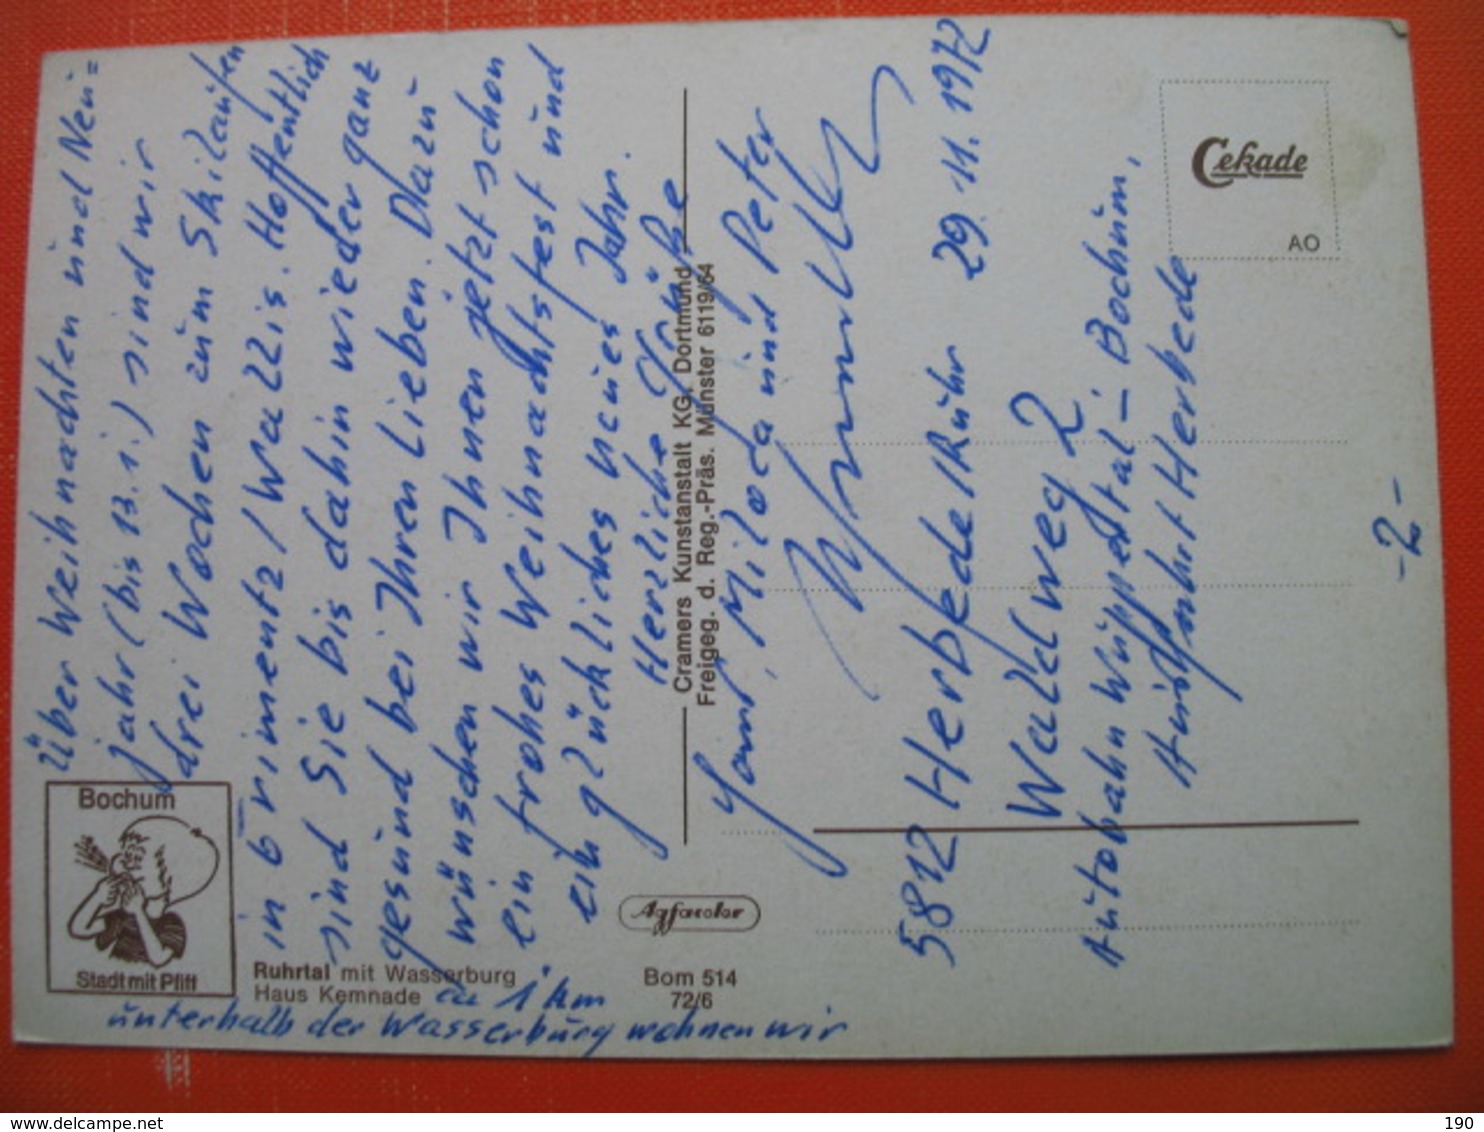 Über Weihnachten und Neu=
jahr (bis 13.1.) sind wir
drei Wochen zum Skilaufen
in Grimentz / Wallis. Hoffentlich
sind Sie bis dahin wieder ganz
gesund bei Ihren Lieben. Dazu
wünschen wir Ihnen jetzt schon
ein frohes Weihnachtsfest und
ein glückliches neues Jahr.
Herzliche Grüße
Miloda und Peter
5812 Herbede / Ruhr 29.11.1972
Waldweg 2
Autobahn Wuppertal - Bochum,
Ausfahrt Herbede
-2-
Cekade
AO
Cramers Kunstanstalt KG, Dortmund
Freigeg. d. Reg.-Präs. Münster 6119/64
Bochum
Stadt mit Pfiff
Agfacolor
Ruhrtal mit Wasserburg
Haus Kemnade
Bom 514
72/6
ca 1 km
unterhalb der Wasserburg wohnen wir
delcampe.net
mkramer
190